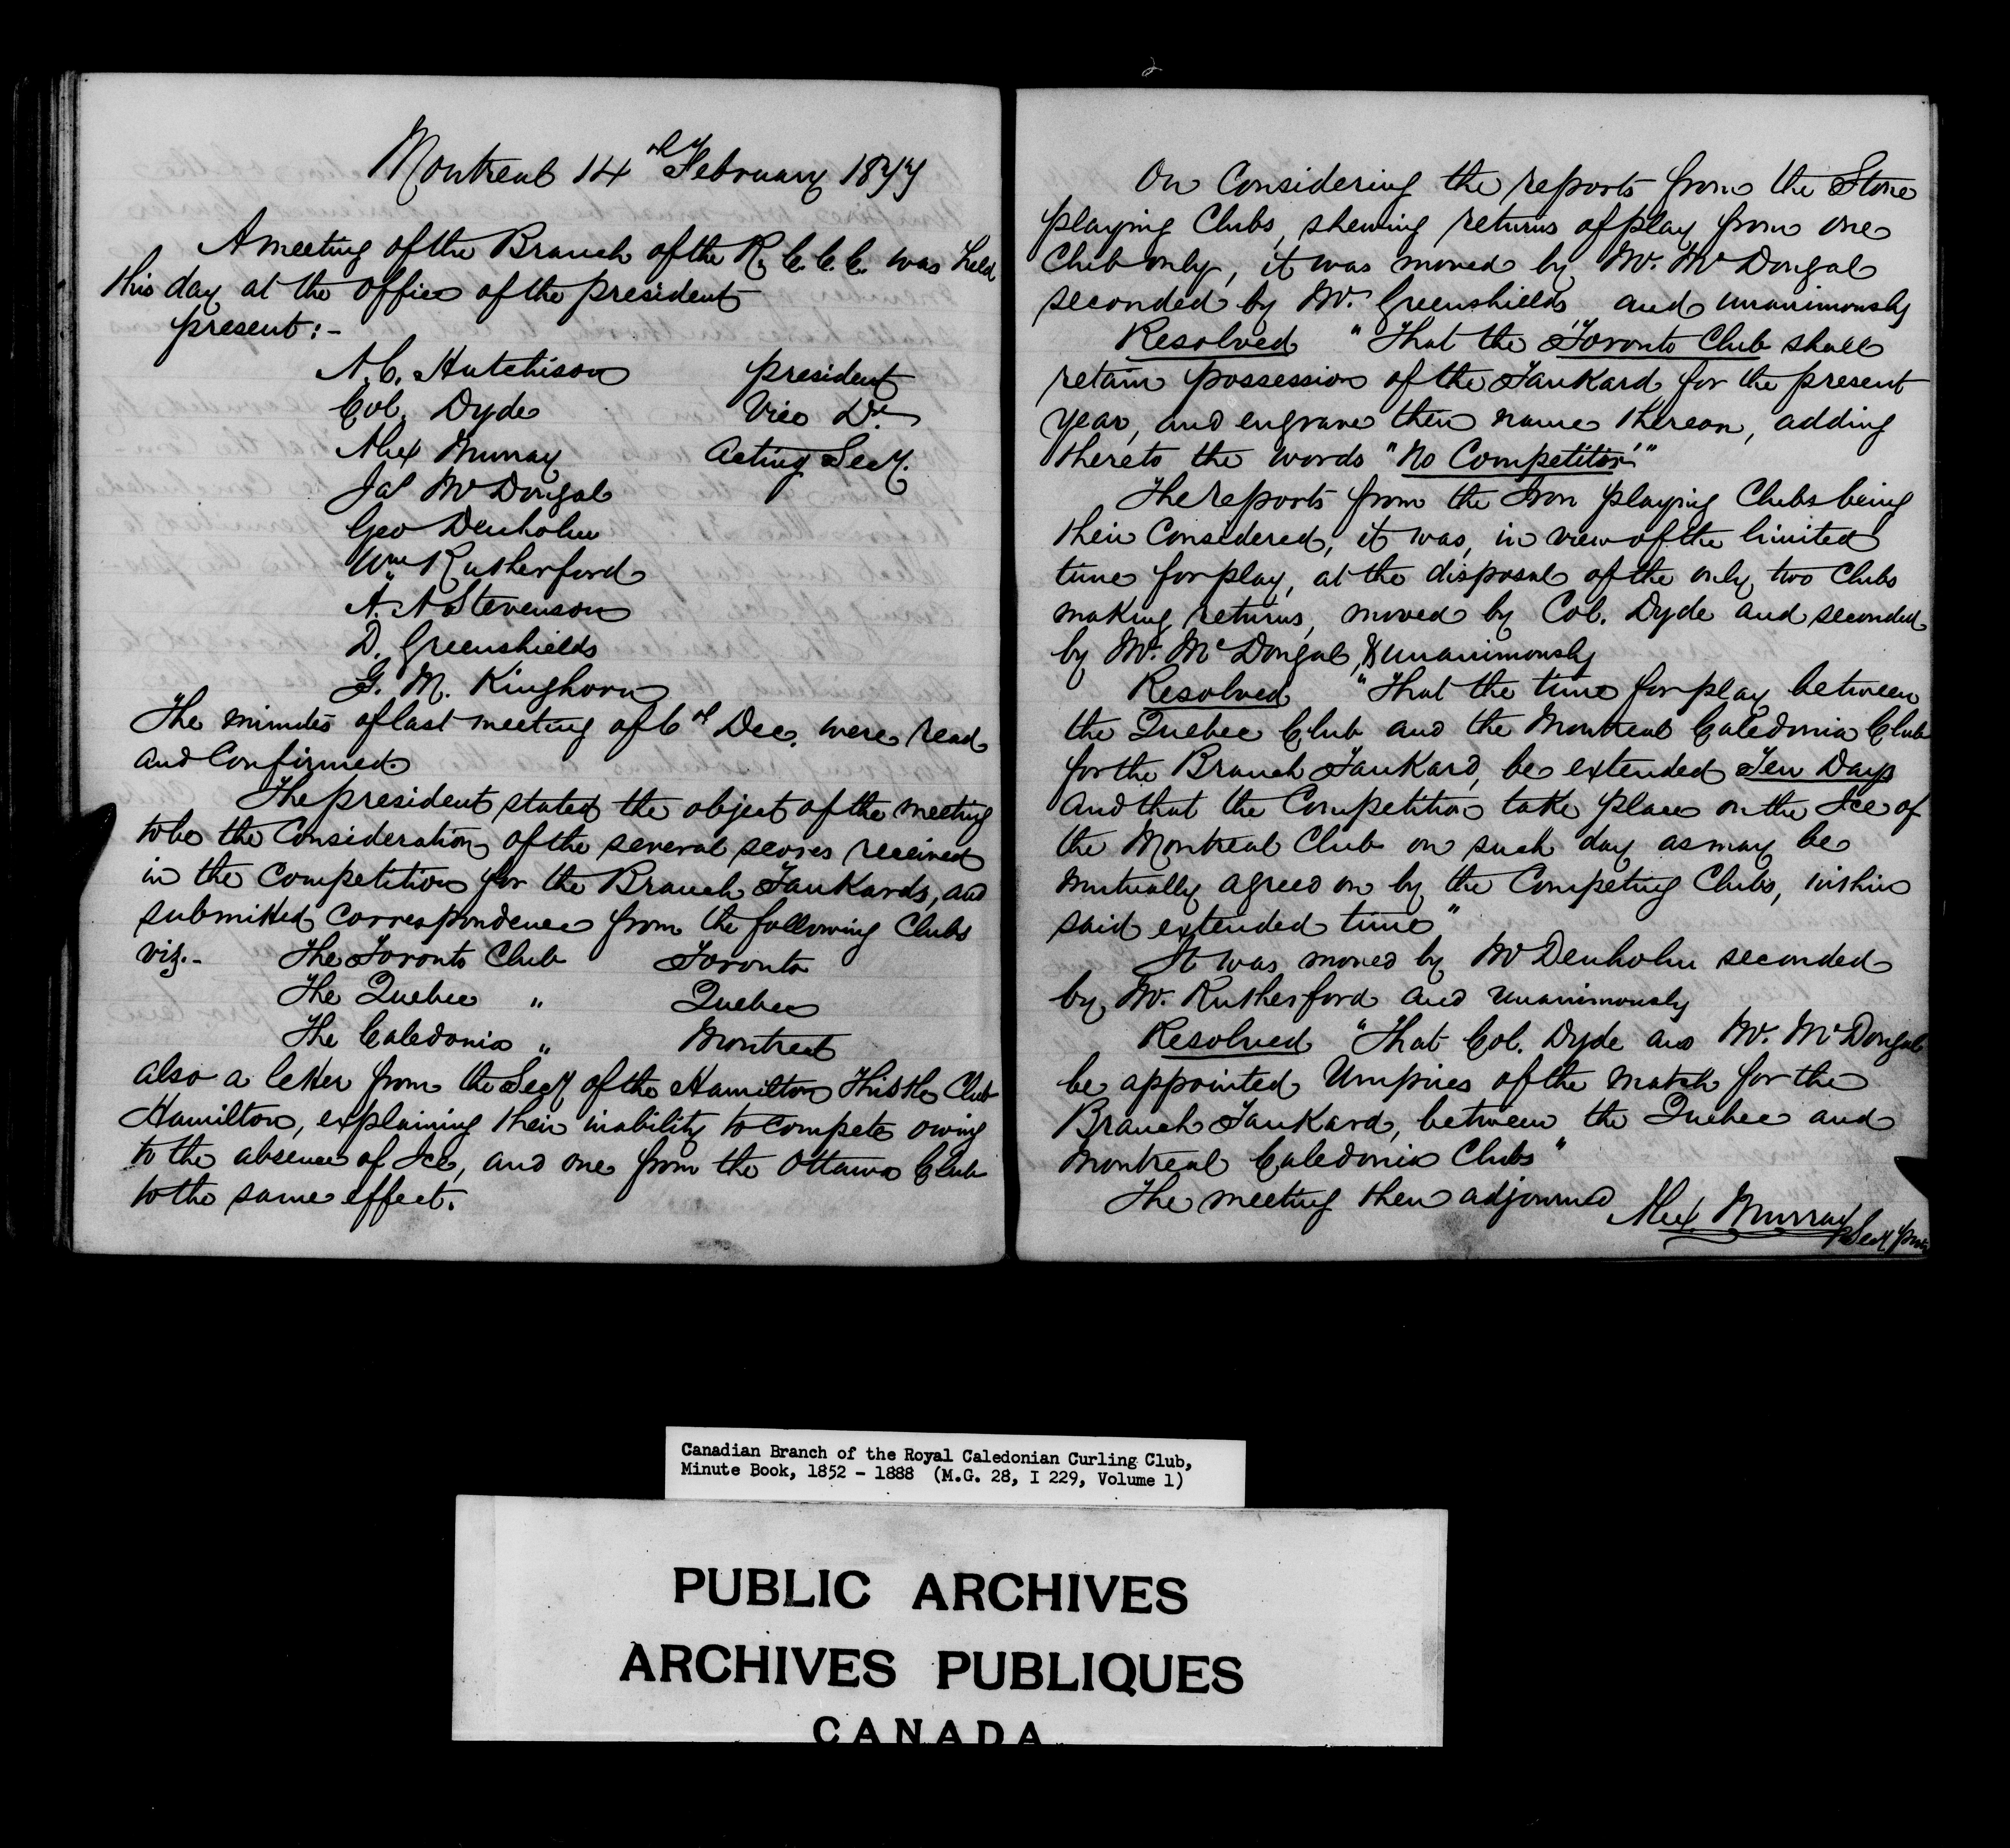 Montreal 14th February 1877
A meeting of the Branch of the R. C. C. C. was held
this day at the office of the president
present:-
A. C. Hutchison president
Col. Dyde Vice Do.
Alex Murray Acting Secy.
Jas McDougal
Geo Denholm
Wm Rutherford
A. A Stevenson
D. Greenshields
G. M. Kinghorn
The minutes of last meeting of 6th Dec. were read
and Confirmed.
The president stated the object of the meeting
to be the Consideration of the several scores received
in the Competition for the Branch Tankards, and
submitted Correspondence from the following Clubs
viz.- The Toronto Club Toronto
The Quebec " Quebec
The Caledonia " Montreal
also a letter from the Secy of the Hamilton Thistle Club
Hamilton, explaining their inability to compete owing
to the absence of Ice, and one from the Ottawa Club
to the same effect.
2
On Considering the reports from the Stone
playing Clubs, shewing returns of play from one
Club only, it was moved by Mr. McDougal
seconded by Mr. Greenshields and unanimously
Resolved "That the Toronto Club shall
retain possession of the Tankard for the present
year, and engrave their name thereon, adding
thereto the words "No Competitor"."
The reports from the Iron playing Clubs being
then Considered, it was, in view of the limited
time for play, at the disposal of the only two Clubs
making returns, moved by Col. Dyde and seconded
by Mr. McDougal, & unanimously
Resolved "That the time for play between
the Quebec Club and the Montreal Caledonia Club
for the Branch Tankard, be extended Ten Days
and that the Competition take place on the Ice of
the Montreal Club on such day as may be
mutually agreed on by the Competing Clubs, within
said extended time"
It was moved by Mr Denholm seconded
by Mr. Rutherford and unanimously
Resolved "That Col. Dyde and Mr. McDougal
be appointed Umpires of the match for the
Branch Tankard, between the Quebec and
Montreal Caledonia Clubs"
The meeting then adjourned
Alex Murray
Secy pro
Canadian Branch of the Royal Caledonian Curling Club,
Minute Book, 1852 - 1888 (M.G. 28, I 229, Volume 1)
PUBLIC ARCHIVES
ARCHIVES PUBLIQUES
CANADA